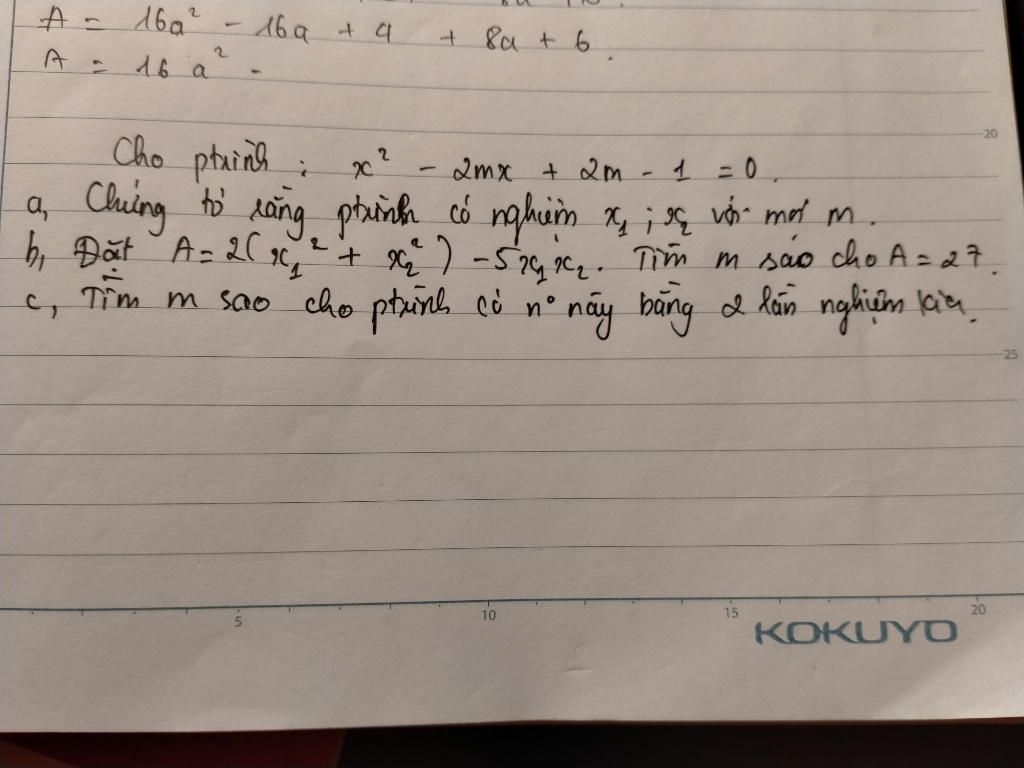 A = 16a² - 16a + 4 + 8a + 6.
A = 16 a² -
20
Cho ptrình : x² - 2mx + 2m - 1 = 0.
a, Chứng tỏ rằng ptrình có nghiệm x₁ ; x₂ với mọi m.
b, Đặt A = 2(x₁² + x₂²) - 5x₁x₂. Tìm m sao cho A = 27.
c, Tìm m sao cho ptrình có n° này bằng 2 lần nghiệm kia.
25
5 10 15 20
KOKUYO